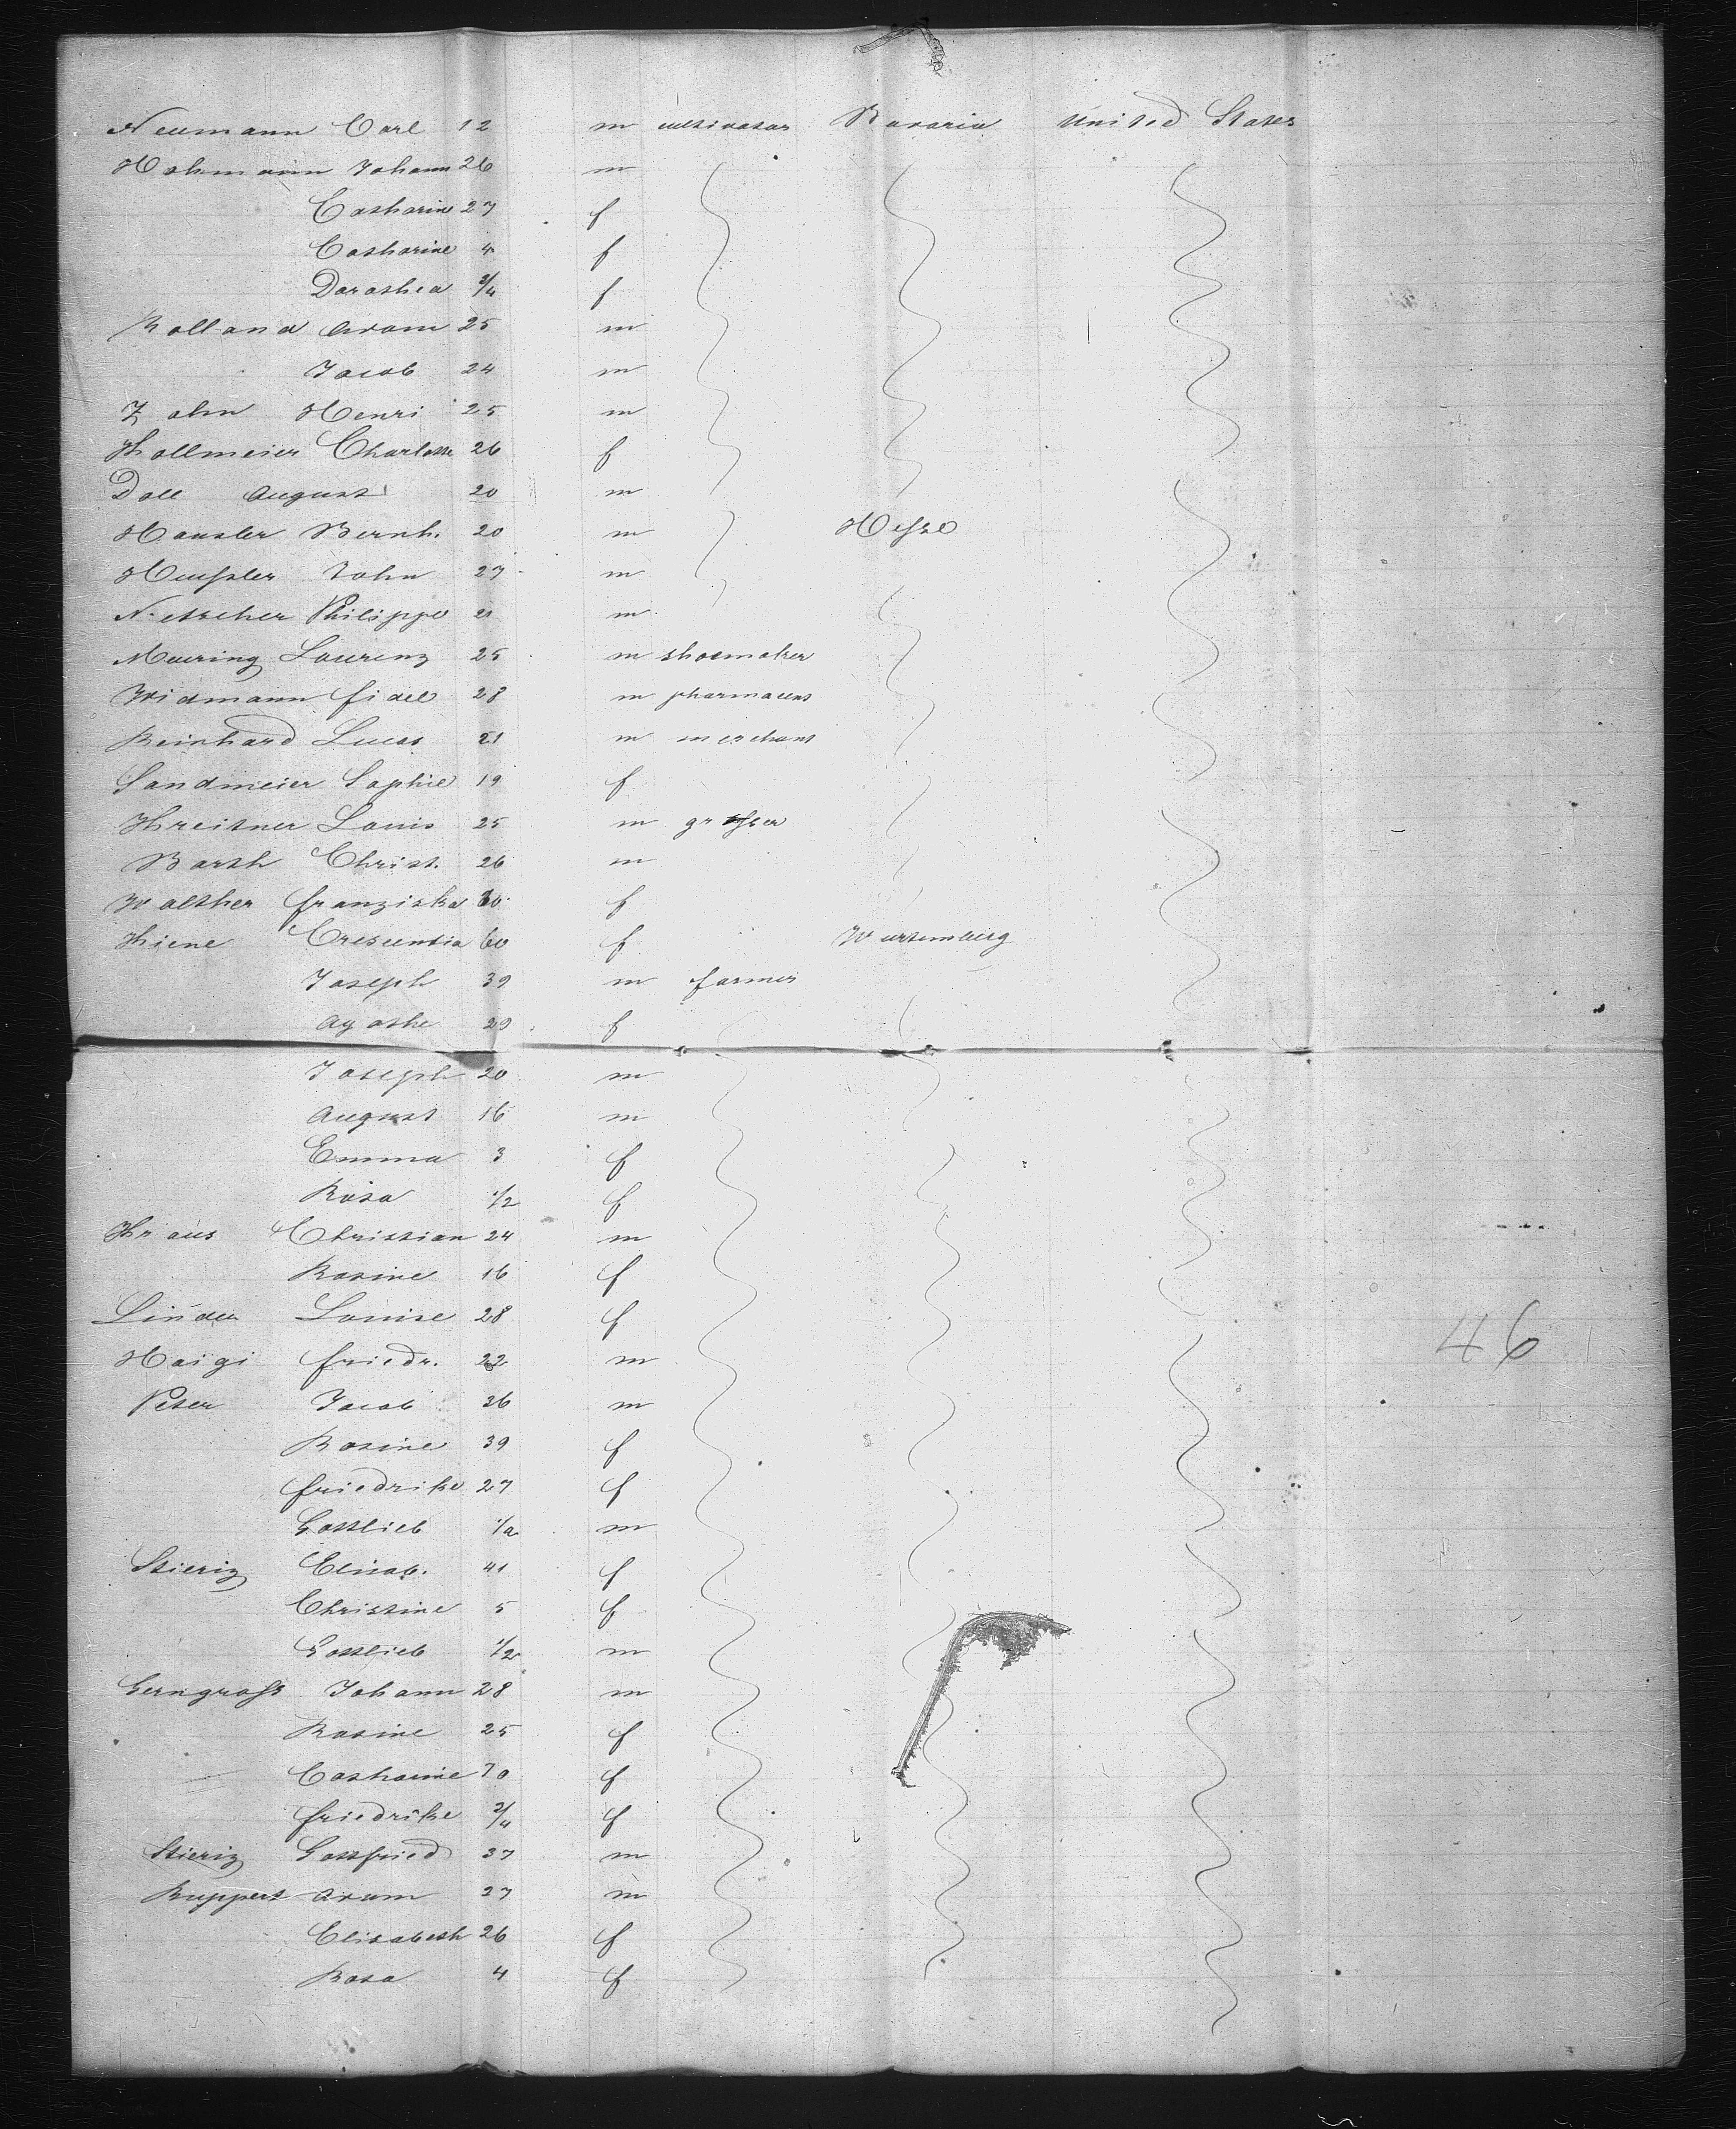 Neumann Carl 12 m cultivator Bavaria United States
Hohmann Johann 26 m
Catharine 27 f
Catharine 4 f
Dorothea 3/4 f
Rolland Adam 25 m
Jacob 24 m
Zahn Henri 25 m
Kollmeier Charlotte 26 f
Doll August 20 m
Hausler Bernh. 20 m Hesse
Heussler John 27 m
Netscher Philippe 21 m
Meuring Laurenz 25 m shoemaker
Widmann Fidel 28 m
Reinhard Lucas 21 m merchant
Sandmeier Sophie 19 f
Kreitner Louis 25 m
Barth Christ. 26 m
Walther Franziska f
Kiene Crescentia 60 f Wurtemberg
Joseph 39 m farmer
Agathe 29 f
Joseph 20 m
August 16 m
Emma 3 f
Rosa 1/2 f
Kraus Christian 24 m
Rosine 16 f
Louise 28 f
Haigi Friedr. 22 m
Peter Jacob 36 m
Rosine 39 f
Friedrike 27 f
Gottlieb 1/2 m
Stieriz Elisab. 41 f
Christine 5 f
Gottlieb 1/2 m
Gerngross Johann 28 m
Rosine 25 f
Catharine 70 f
Friedrike 3/4 f
Stieriz Gottfried 37 m
Ruppert Adam 27 m
Elisabeth 26 f
Rosa 4 f
46